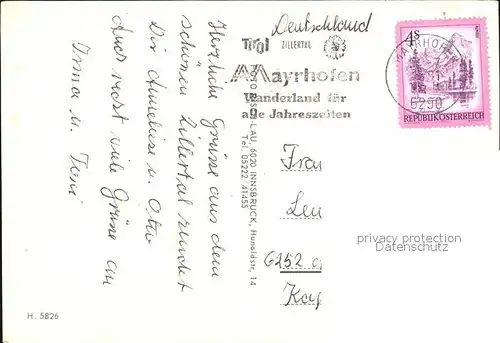 Herzliche Grüße aus dem
schönen Zillertal sendet
Dir Anneliese u. Otto
Auch recht viele Grüße an
Irma u. Toni
Deutschland
Tirol
ZILLERTAL
Mayrhofen
Wanderland für
alle Jahreszeiten
MAYRHOFEN
6290
4S
REPUBLIK ÖSTERREICH
LAU, 6020 INNSBRUCK, Hunoldstr. 14
Tel. 05222/41455
Frau
Leu
6252
Kap
privacy protection
Datenschutz
H. 5826